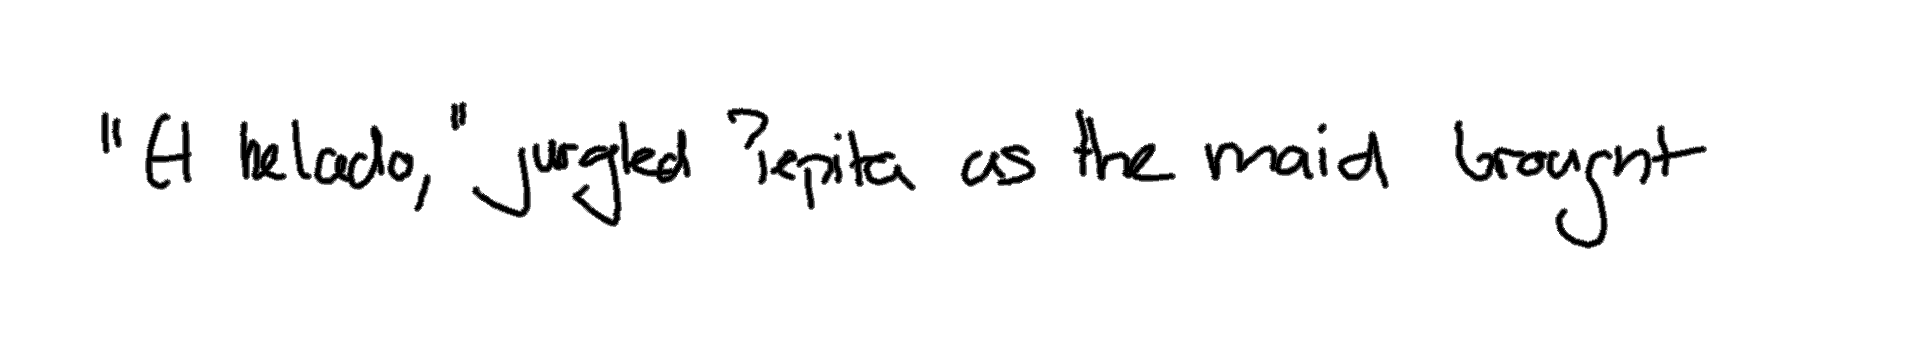 "El helado," jurgled Pepita as the maid brought